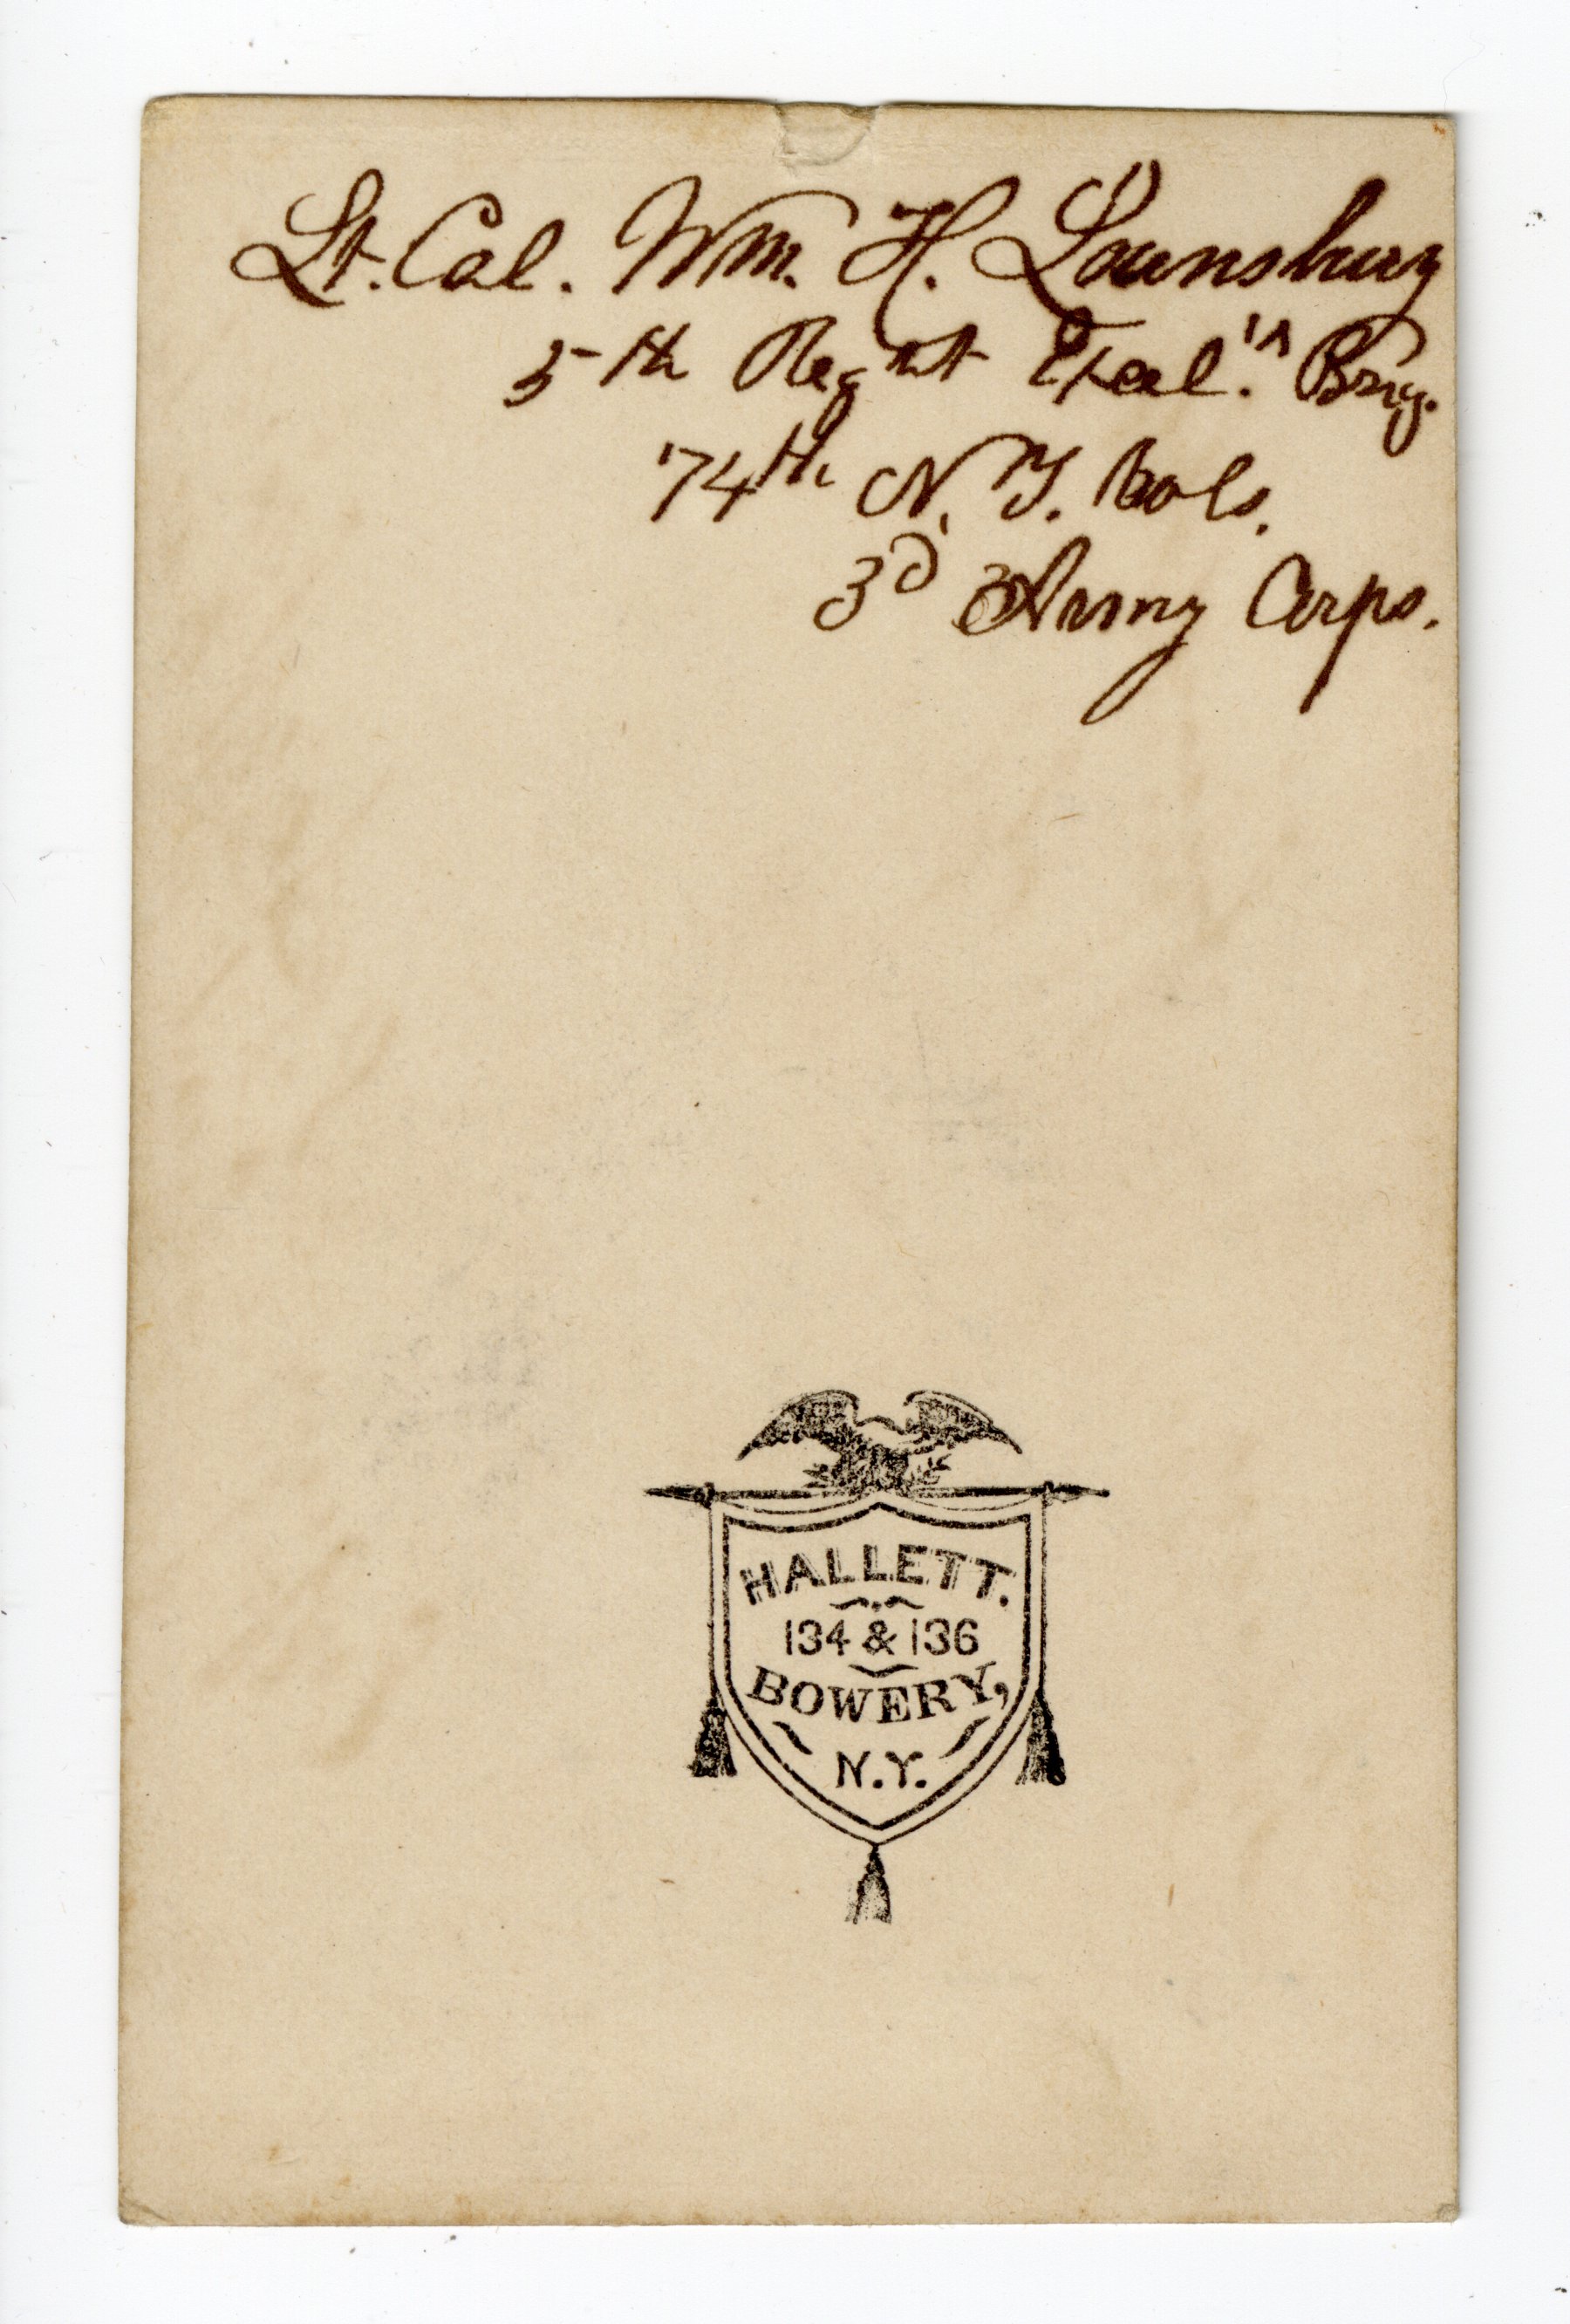 Lt. Col. Wm. H. Lounsbury
5th Regmt Excel.'r Brig.
74th N. Y. Vols.
3d Army Corps.
HALLETT.
134 & 136
BOWERY,
N.Y.